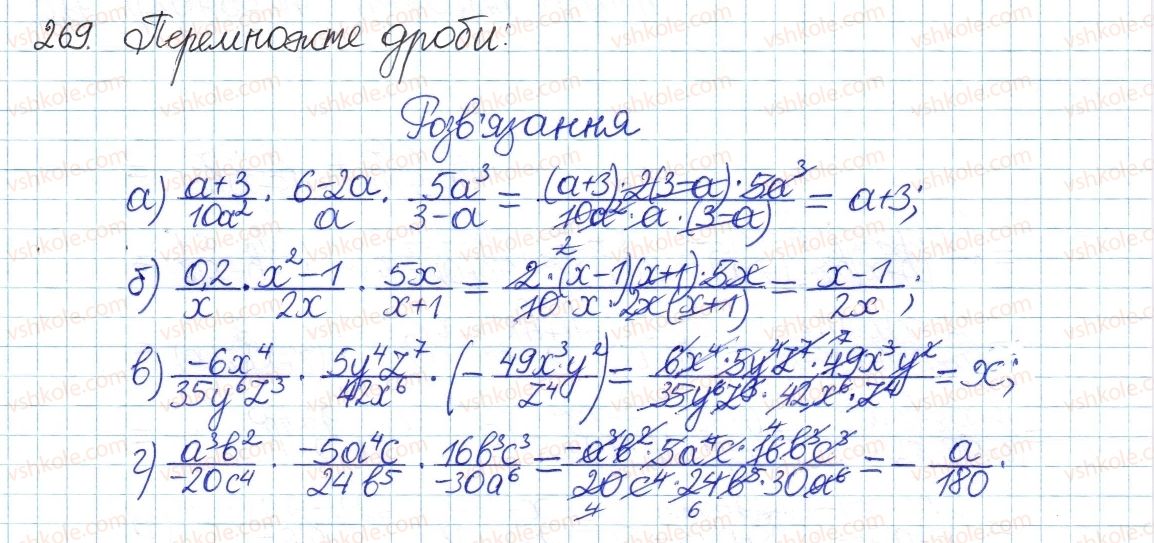 269. Перемножте дроби:
Розв'язання
а) \frac{a+3}{10a^2} · \frac{6-2a}{a} · \frac{5a^3}{3-a} = \frac{(a+3)·2(3-a)·5a^3}{10a^2·a·(3-a)} = a+3;
б) \frac{0,2}{x} · \frac{x^2-1}{2x} · \frac{5x}{x+1} = \frac{2·(x-1)(x+1)·5x}{10·x·2x(x+1)} = \frac{x-1}{2x};
в) \frac{-6x^4}{35y^6z^3} · \frac{5y^4z^7}{42x^6} · (-\frac{49x^3y^2}{z^4}) = \frac{6x^4·5y^4z^7·49x^3y^2}{35y^6z^3·42x^6·z^4} = x;
г) \frac{a^3b^2}{-20c^4} · \frac{-5a^4c}{24b^5} · \frac{16b^3c^3}{-30a^6} = \frac{-a^3b^2·5a^4c·16b^3c^3}{20c^4·24b^5·30a^6} = -\frac{a}{180}.